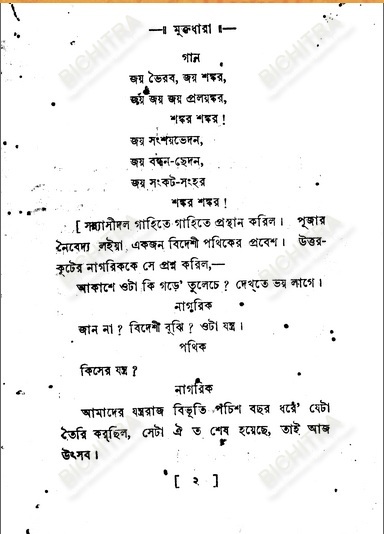 —॥ মুক্তধারা ॥—
গান
জয় ভৈরব, জয় শঙ্কর,
জয় জয় জয় প্রলয়ঙ্কর,
শঙ্কর শঙ্কর !
জয় সংশয়ভেদন,
জয় বন্ধন-ছেদন,
জয় সংকট-সংহর
শঙ্কর শঙ্কর !
[ সন্ন্যাসীদল গাহিতে গাহিতে প্রস্থান করিল। পূজার
নৈবেদ্য লইয়া একজন বিদেশী পথিকের প্রবেশ। উত্তর-
কূটের নাগরিককে সে প্রশ্ন করিল,—
আকাশে ওটা কি গড়ে’ তুলেচে ? দেখ্‌তে ভয় লাগে।
নাগরিক
জান না ? বিদেশী বুঝি ? ওটা যন্ত্র।
পথিক
কিসের যন্ত্র ?
নাগরিক
আমাদের যন্ত্ররাজ বিভূতি পঁচিশ বছর ধরে’ যেটা
তৈরি কর্‌ছিল, সেটা ঐ ত শেষ হয়েছে, তাই আজ
উৎসব।
[ ২ ]
BICHITRA
BICHITRA
BICHITRA
BICHITRA
BICHITRA
BICHITRA